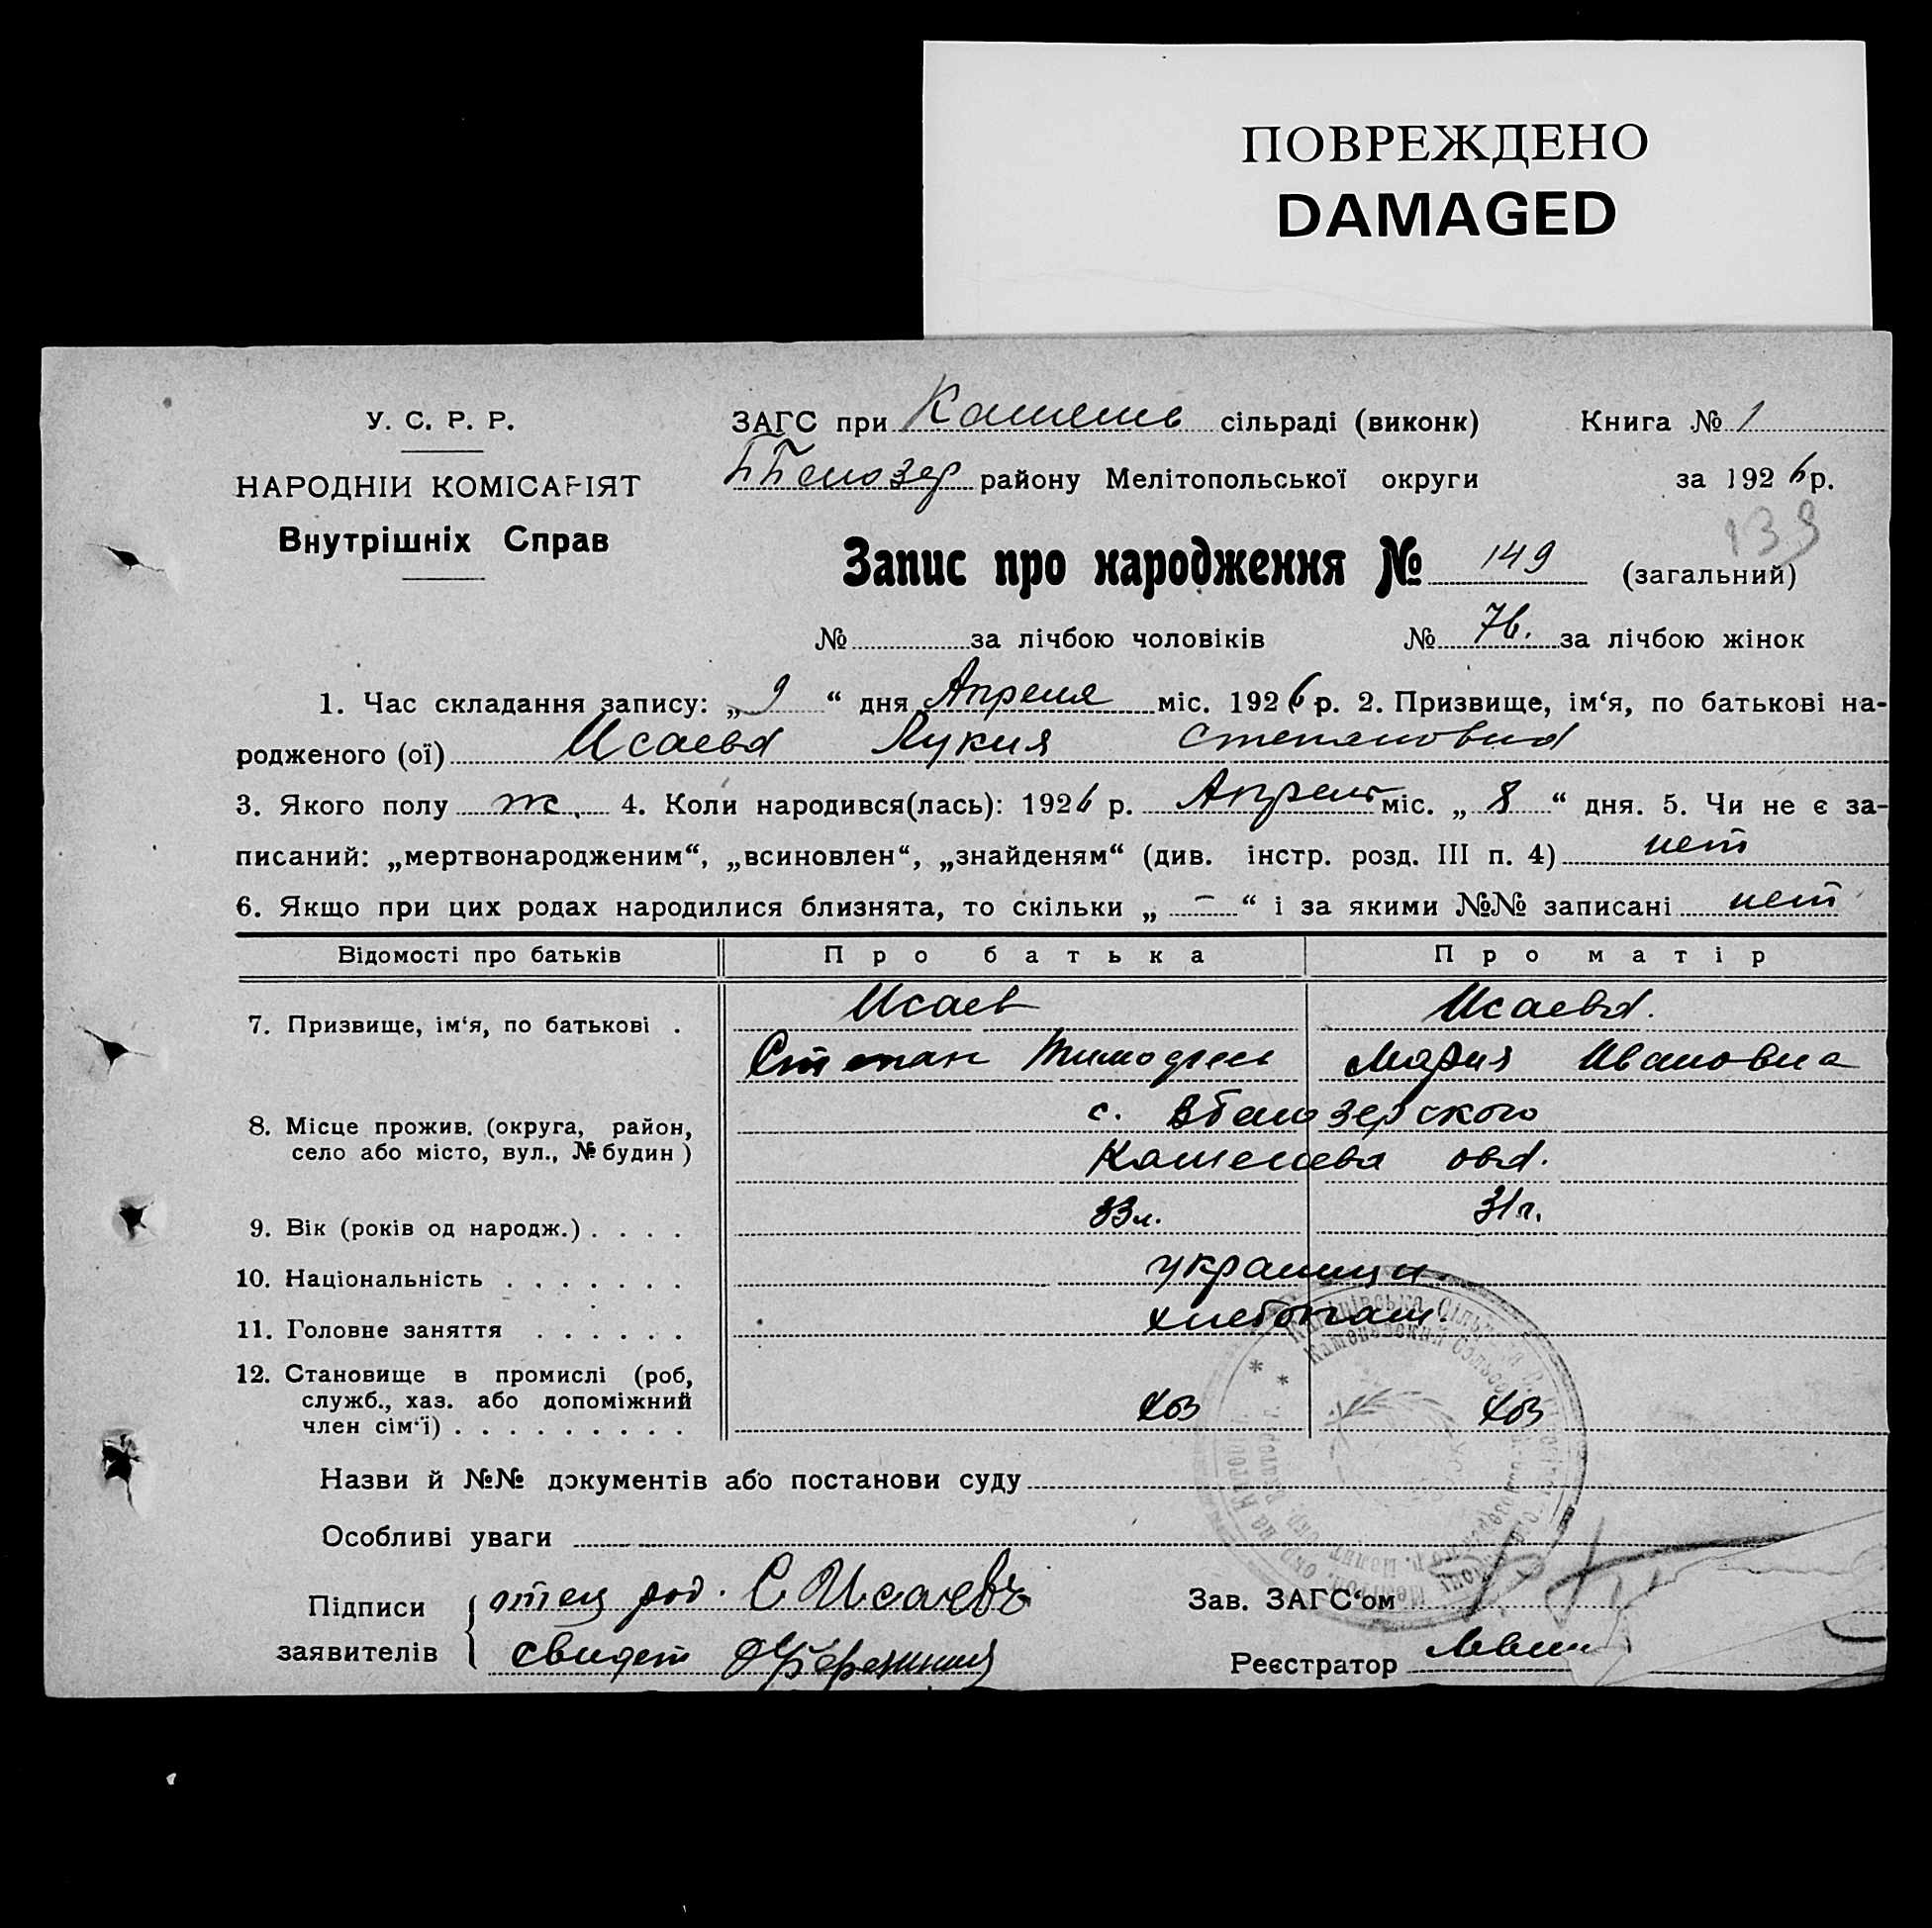 ПОВРЕЖДЕНО
DAMAGED
У. С. Р. Р.
НАРОДНІЙ КОМІСАРІЯТ
Внутрішніх Справ
ЗАГС при Камень сільраді (виконк) Книга № 1
району Мелітопольської округи за 1926 р.
139
Запис про народження № 149 (загальний)
№ за лічбою чоловіків № 76. за лічбою жінок
1. Час складання запису: „ 9 “ дня Апреля міс. 1926 р. 2. Призвище, ім‘я, по батькові на-
родженого (ої) Исаева Лукия Степановна
3. Якого полу ж. 4. Коли народився(лась): 1926 р. Апрель міс. „ 8 “ дня. 5. Чи не є за-
писаний: „мертвонародженим“, „всиновлен“, „знайденям“ (див. інстр. розд. III п. 4) нет
6. Якщо при цих родах народилися близнята, то скільки „ – “ і за якими №№ записані нет
Відомості про батьків Про батька Про матір
7. Призвище, ім‘я, по батькові . Исаев Исаева.
Степан Мария Ивановна
8. Місце прожив. (округа, район, с.
село або місто, вул., № будин)
9. Вік (років од народж.) . . . . 33 л. 31 г.
10. Національність . . . . . . . украинци.
11. Головне заняття . . . . . . хлебопаш.
12. Становище в промислі (роб,
служб., хаз. або допоміжний
член сім‘ї) . . . . . . . . . хоз хоз
Назви й №№ документів або постанови суду
Особливі уваги
Підписи отец род. С Исаевъ Зав. ЗАГС‘ом
заявителів свидет Реєстратор